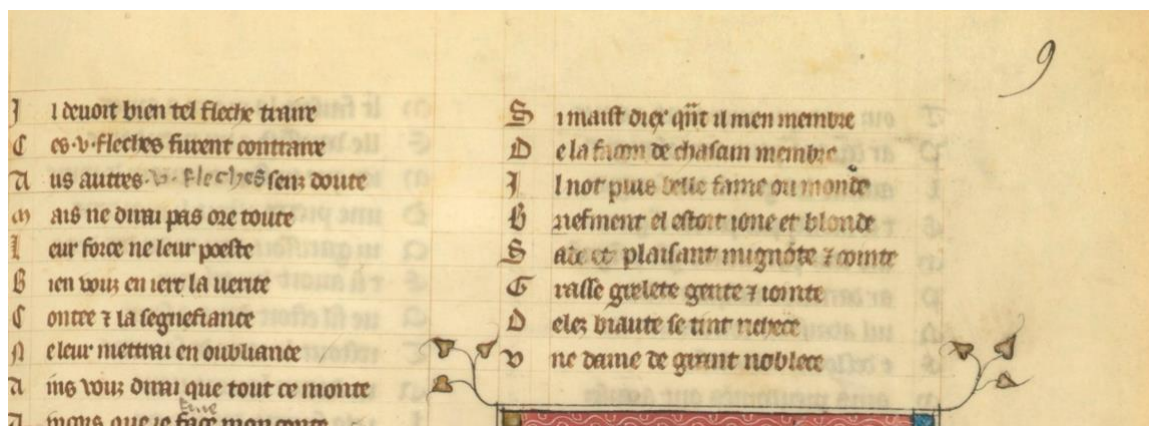 I l devoit bien tel fleche traire
C es .v. fleches furent contraire
A us autres .v. fleches senz doute
M ais ne dirai pas ore toute
L eur force ne leur poeste
B ien vous en iert la verite
C ontee ⁊ la segnefiance
N e leur mettrai en oubliance
A ins vous dirai que tout ce monte
A incois que je fine mon conte
9
S i maist diex qñt il men membre
D e la facon de chascun membre
I l not plus belle fame ou monde
B riefment el estoit jone et blonde
S ade et plaisant mignote ⁊ cointe
G rasse grelete gente ⁊ jointe
D elez biaute se tint richece
V ne dame de grant noblece